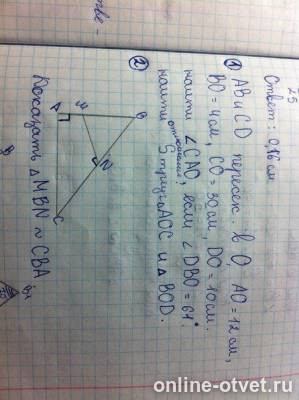 25
стве -
Ответ: 0,16 см
① AB и CD пересек. в O, AO = 12 см,
BO = 4 см, CO = 30 см, DO = 10 см.
найти ∠CAO, если ∠DBO = 61°
отношения
найти S треуг. AOC и ∆ BOD.
②
A M B
N
C
Доказать ∆MBN ~ CBA
online-otvet.ru